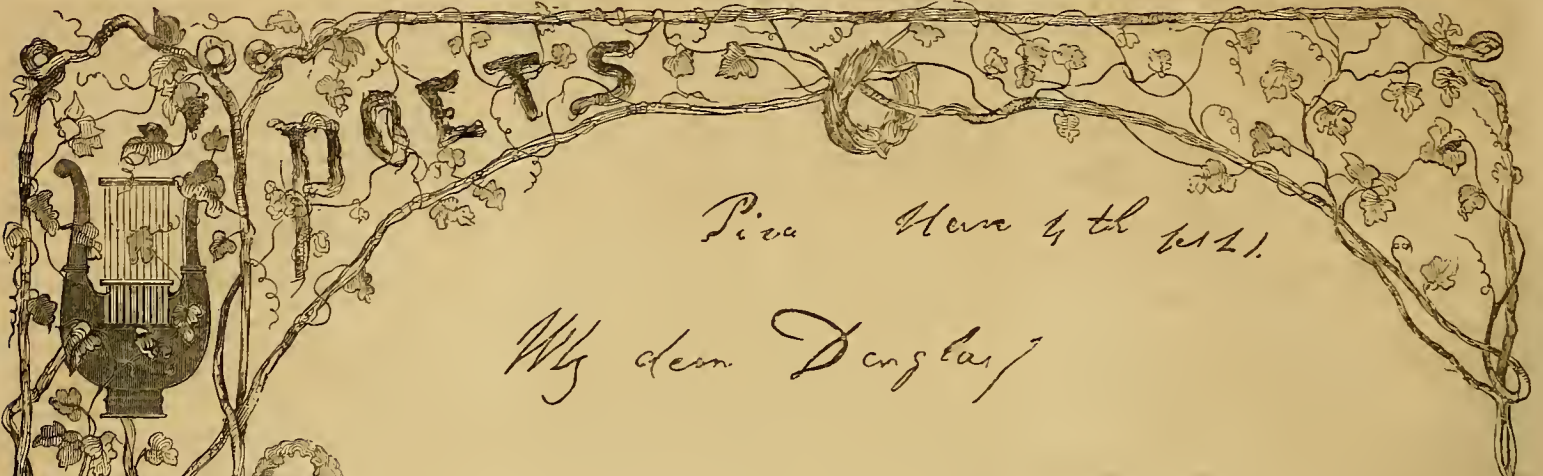 POETS
Pisa Novr 4th 1821.
My dear Douglas